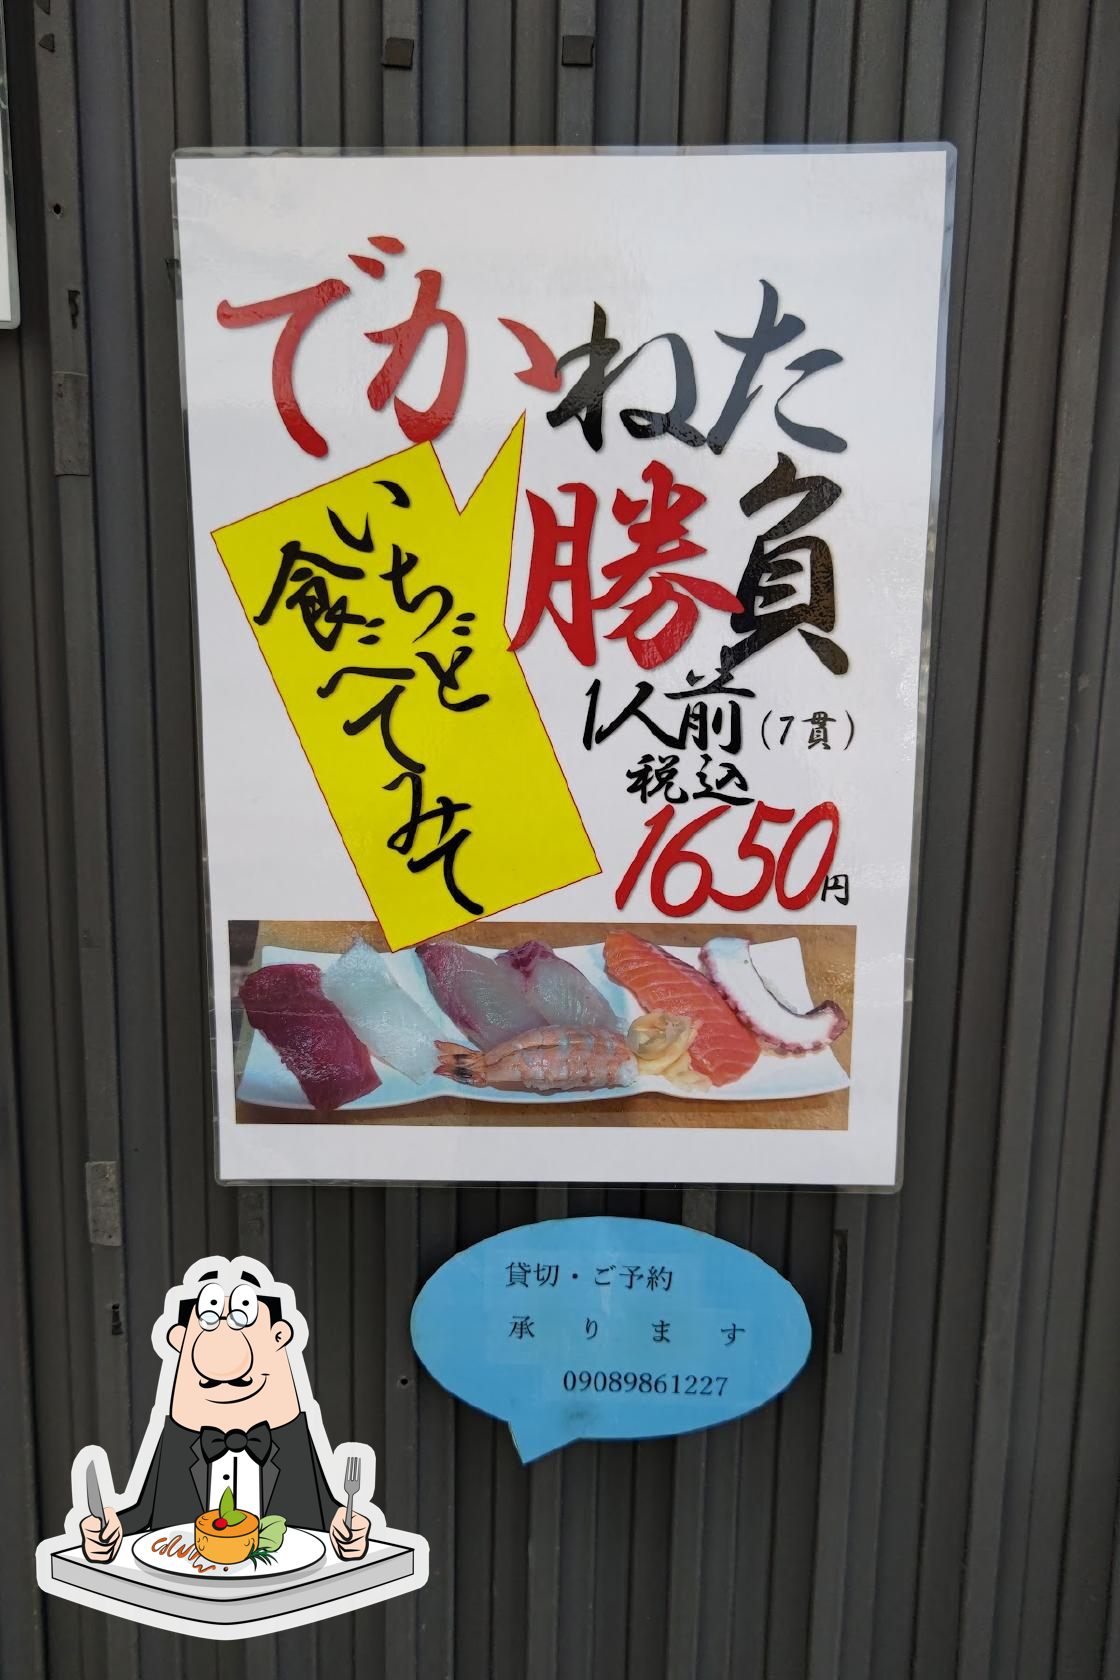 でかねた
勝負
いちど
食べてみて
1人前(7貫)
税込
1650円
貸切・ご予約
承ります
09089861227